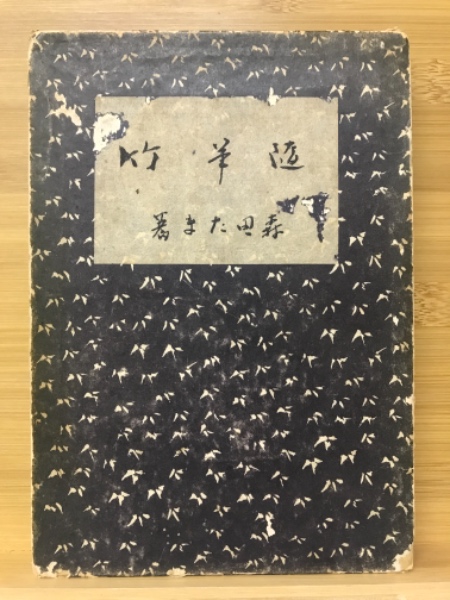 随筆竹
森田たま著